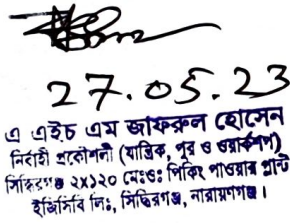 27.05.23
এ এইচ এম জাফরুল হোসেন
নির্বাহী প্রকৌশলী (যান্ত্রিক, পুর ও ওয়ার্কশপ)
সিদ্ধিরগঞ্জ ২x১২০ মেঃওঃ পিকিং পাওয়ার প্লান্ট
ইজিসিবি লিঃ, সিদ্ধিরগঞ্জ, নারায়ণগঞ্জ।